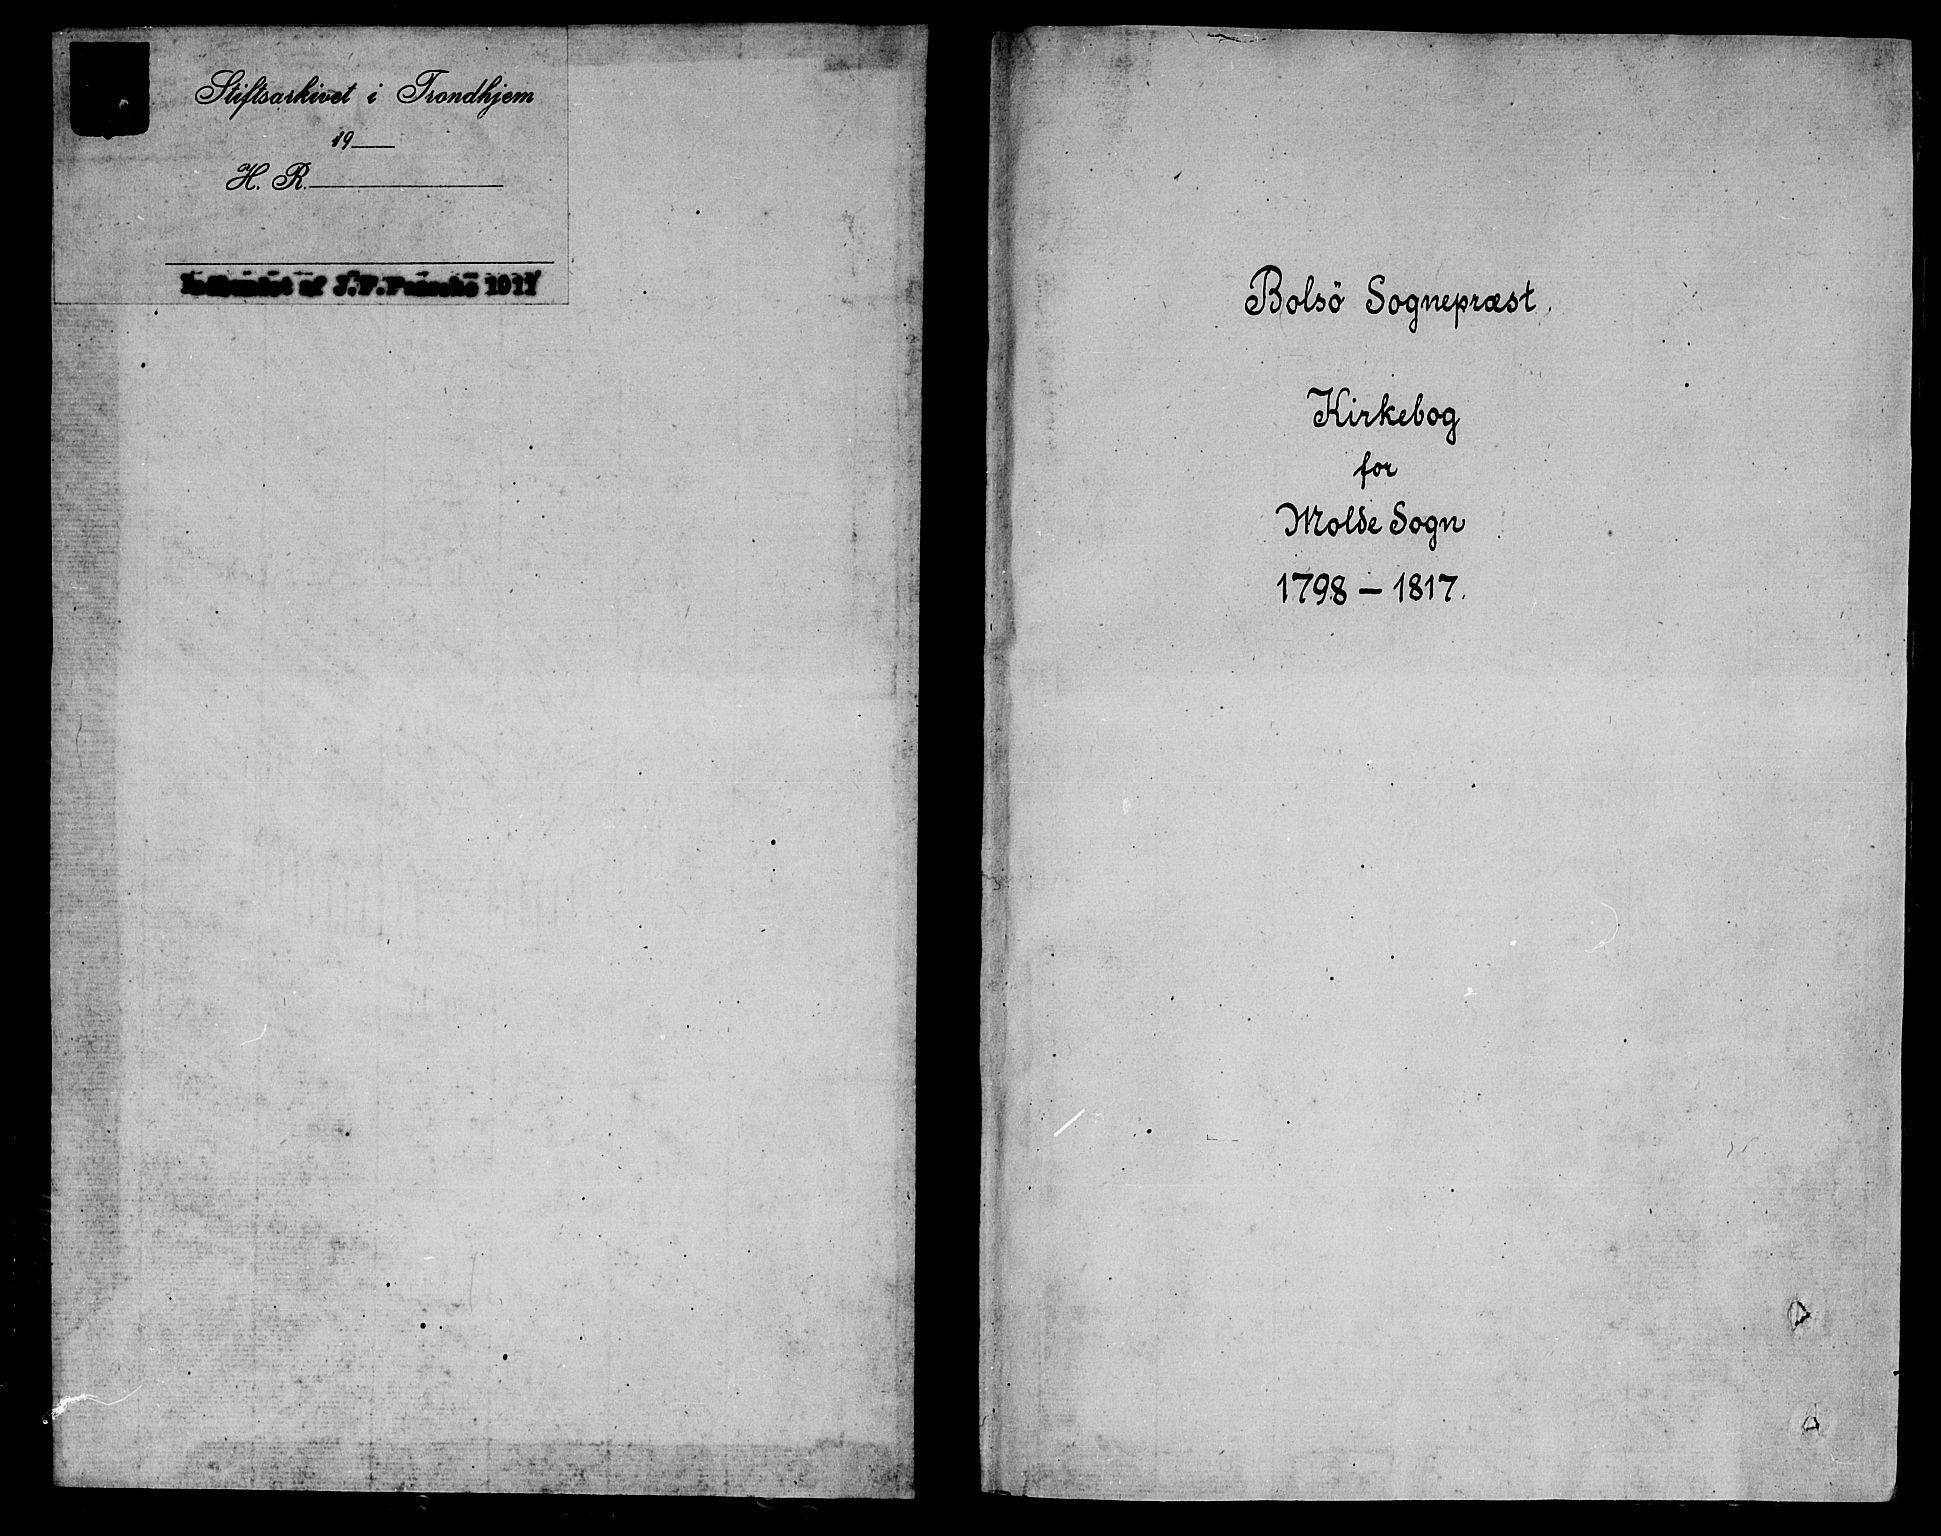 Stiftsarkivet i Trondhjem
19
H. R.
af J. F. 1911
Bolsö Sognepræst.
Kirkebog
for
Molde Sogn
1798 – 1817.